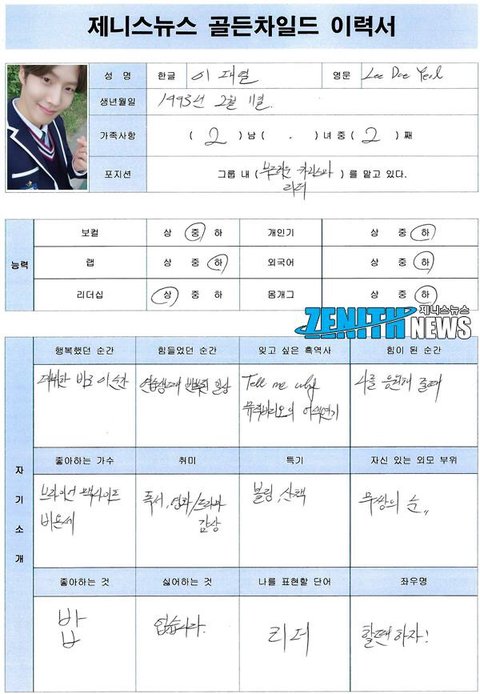 제니스뉴스 골든차일드 이력서
성 명 한글 이대열 영문 Lee Dae Yeol
생년월일 1993년 2월 11일.
가족사항 ( 2 ) 남 ( . ) 녀 중 ( 2 ) 째
포지션 그룹 내 ( 부드러운 카리스마 ) 를 맡고 있다.
리더
능력
보컬 상 중 하 개인기 상 중 하
랩 상 중 하 외국어 상 중 하
리더십 상 중 하 몸개그 상 중 하
ZENITH NEWS 제니스뉴스
자기소개
행복했던 순간 힘들었던 순간 잊고 싶은 흑역사 힘이 된 순간
데뷔한 바로 이 순간 연습생때 반복된 일상 Tell me why 나를 응원해 줄때
뮤직비디오의 어색연기
좋아하는 가수 취미 특기 자신 있는 외모 부위
브라이언 맥나이트 독서, 영화/드라마 볼링, 산책 무쌍의 눈,,
비욘세 감상
좋아하는 것 싫어하는 것 나를 표현할 단어 좌우명
밥 없습니다. 리더 할땐 하자!